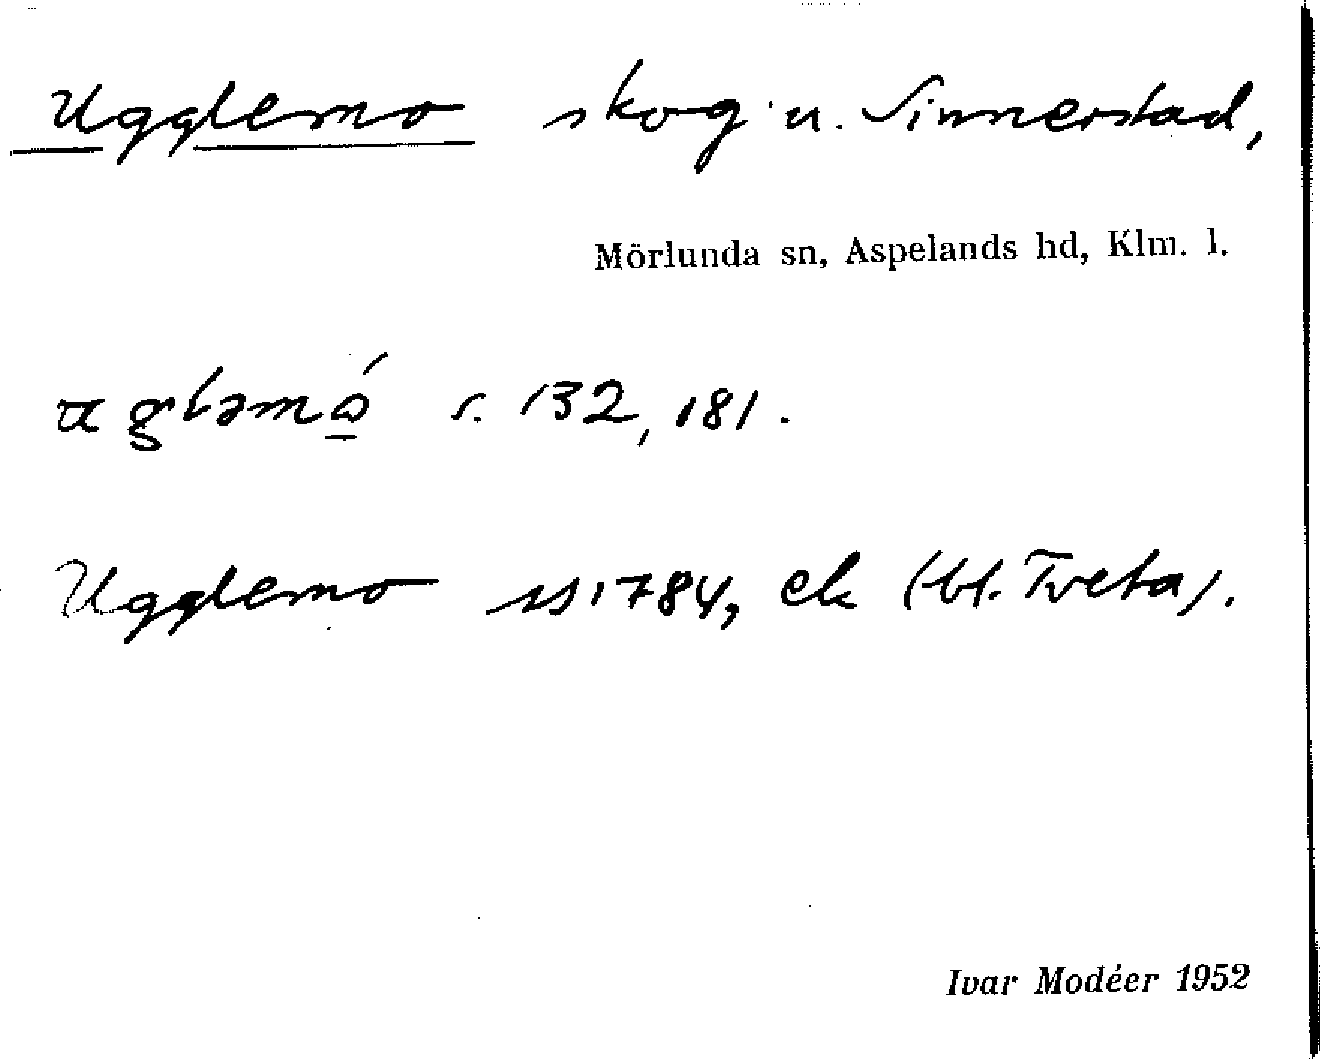 Ugglemo skog u. Sinnerstad,
Mörlunda sn, Aspelands hd, Klm. l.
s. 132, 181.
Ugglemo 1784, ek (bl. Tveta).
Ivar Modéer 1952